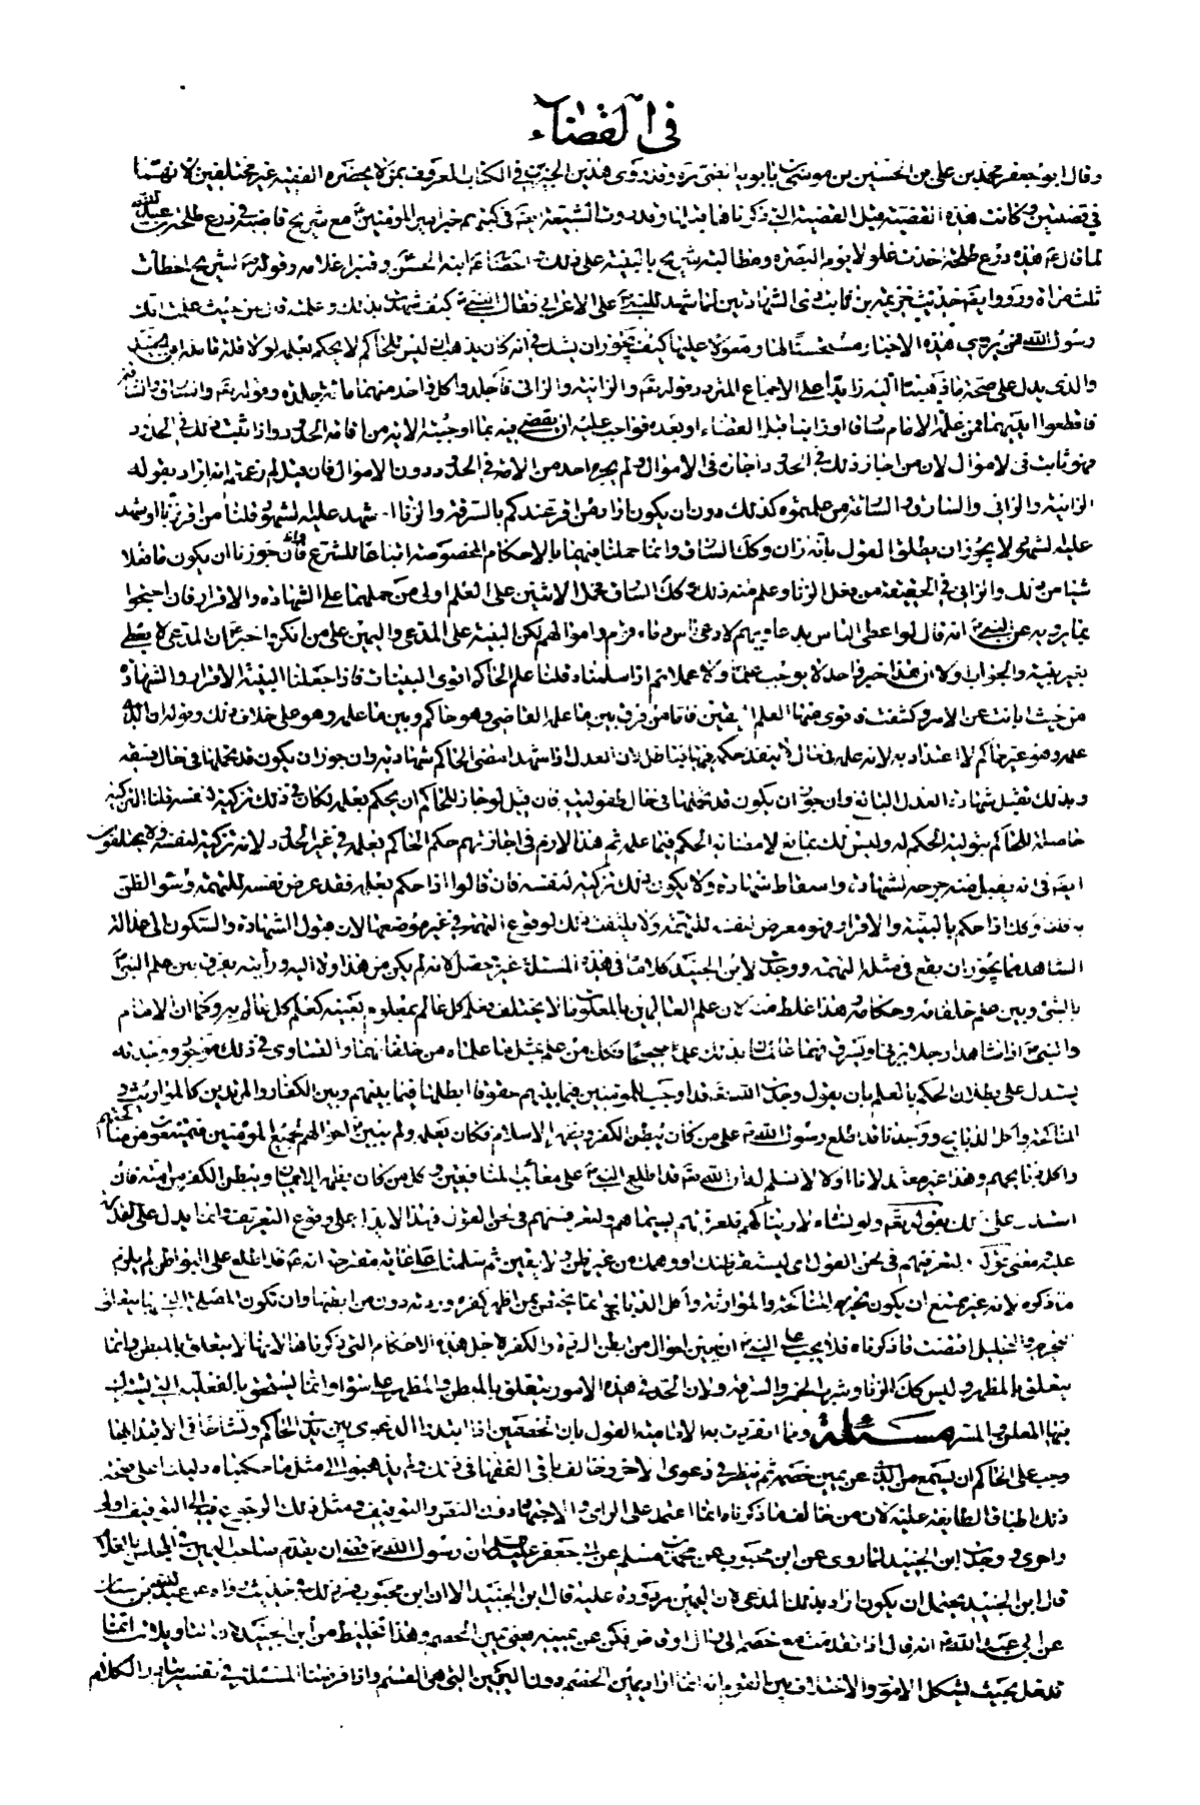 في القضاء
وقال ابو جعفر محمد بن علي بن الحسين بن موسى بن بابويه القمي ره وقد روى هذين الخبرين في الكتاب المعروف بمن لا يحضره الفقيه غير مختلفين لانهما
في قضيتين وكانت هذه القضية قبل القضية التي ذكرناها وقد روت الشيعة ايضا في كتبهم خبر امير المؤمنين ع مع شريح قاضيه في درع طلحة
لما قال ع هذه درع طلحة اخذت غلولا يوم البصرة ومطالبة شريح بالبينة على ذلك احضاره ابنه الحسن وقنبرا غلامه وقوله ع لشريح اخطات
ثلث مرات ورووا ايضا حديث خزيمة بن ثابت ذي الشهادتين لما شهد للنبي ص على الاعرابي فقال النبي ص كيف شهدت بذلك وعلمته قال من حيث علمت انك
رسول الله فمن يروي هذه الاخبار مستحسنا لها ومعولا عليها كيف يجوز ان يشك في انه كان يذهب الى ليس للحاكم لا يحكم بعلمه لولا قلة تامل ابن الجنيد
والذي يدل على صحة ما ذهبنا اليه زايدا على الاجماع المتردد قوله تع والزانية والزاني فاجلدوا كل واحد منهما مائة جلدة وقوله تع والسارق والسارقة
فاقطعوا ايديهما فمن علمه الامام سارقا او زانيا قبل القضاء او بعده فواجب عليه ان يقضي فيه بما اوجبته الاية من اقامة الحدود واذا ثبت ذلك في الحدود
فهو ثابت في الاموال لان من اجاز ذلك في الحدود اجازه في الاموال ولم يجزه احد من الامة في الحدود دون الاموال فان قيل لم زعمتم انه اراد بقوله
الزانية والزاني والسارق والسارقة من علمتموه كذلك دون ان يكون اراد من اقر عندكم بالسرقة والزنا او شهد عليه الشهود قلنا من اقر بزنا او شهد
عليه الشهود لا يجوز ان يطلق القول بانه زان وكك السارق وانما حكمنا فيهما بالاحكام المخصوصة اتباعا للشرع وان جوزنا ان يكون ما فعلا
شيا من ذلك والزاني في الحقيقة من فعل الزنا وعلم منه ذلك وكك السارق فحمل الايتين على العلم اولى من حملهما على الشهادة والاقرار فان احتجوا
بما يروى عن النبي ص انه قال لو اعطي الناس بدعاويهم لادعى ناس دماء قوم واموالهم لكن البينة على المدعي واليمين على من انكر واخبر ان المدعي لا يعطى
بغير بينة والجواب اولا ان هذا خبر واحد لا يوجب علما ولا عملا ثم اذا سلمناه قلنا علم الحاكم اقوى البينات فاذا جعلنا البينة الاقرار والشهادة
من حيث ابانت عن الامر وكشفت فاقوى منهما العلم اليقين فاما من فرق بين ما علمه القاضي وهو حاكم وبين ما علمه وهو على خلاف ذلك وقوله ان الذي
علمه وهو غير حاكم لا اعتداد به لانه علمه في حال لا ينفذ حكمه فيها فباطل لان العدل اذا شهد امضى الحاكم شهادته وان جوز ان يكون قد تحملها في حال فسقه
وبذلك تقبل شهادة العدل البالغ وان جوز ان يكون قد تحملها في حال طفوليته فان قيل لو جاز للحاكم ان يحكم بعلمه لكان في ذلك تزكية لنفسه قلنا التزكية
حاصلة للحاكم بتولية الحكم له وليس ذلك بتابع لامضائه الحكم فيما علمه ثم هذا لازم في اجازتهم حكم الحاكم بعلمه في غير الحدود لانه تزكية لنفسه ولا يختلفون
ايضا في انه يقبل منه جرحه للشهادة واسقاط شهادته ولا يكون ذلك تزكية لنفسه فان قالوا اذا حكم بعلمه فقد عرض نفسه للتهمة وسوء الظن
به قلنا وكك اذا حكم بالبينة والاقرار فهو معرض لنفسه للتهمة ولا يلتفت الى ذلك لوقوع التهمة في غير موضعها لان قبول الشهادة والسكون الى عدالة
الشاهد مما يجوز ان يقع في مثله التهمة ووجدت لابن الجنيد كلاما في هذه المسئلة غير محصل لانه لم يكن من هذا ولا اليه ورايته يفرق بين علم النبي ص
بالشئ وبين علم خلفائه وحكامه وهذا غلط منه لان علم العالمين بالمعلومات لا يختلف فعلم كل عالم بمعلوم بعينه كعلم كل عالم به وكما ان الامام
والنبي ص اذا شاهدا رجلا يزني او يسرق فهما عالمان بذلك علما صحيحا فكل من علم مثل ما علماه من خلفائهما والتساوي في ذلك موجود ووجدته
يستدل على بطلان الحكم بالعلم بان يقول وجدت الله تع قد اوجب للمؤمنين فيما بينهم حقوقا ابطلها فيما بينهم وبين الكفار والمرتدين كالمواريث و
المناكحة واكل الذبايح ووجدنا قد اطلع رسول الله ص على من كان يبطن الكفر ويظهر الاسلام فكان يعلمه ولم يبين احوالهم لجميع المؤمنين فيمتنعوا من مناكحتهم
واكل ذبايحهم وهذا غير معتمد لانا اولا لا نسلم له ان الله تع قد اطلع النبي ص على مغايب المنافقين وكل من كان يظهر الايمان ويبطن الكفر من امته فان
استدل على ذلك بقوله تع ولو نشاء لاريناكهم فلعرفتهم بسيماهم ولتعرفنهم في لحن القول فهذا لا يدل على وقوع التعريف وانما يدل على القدرة
عليه ومعنى قوله لتعرفنهم في لحن القول اي ليستقر ظنك او وهمك من غير ظن ولا يقين ثم سلمنا على غاية مقترحه انه ص قد اطلع على البواطن لم يلزم
ما ذكره لانه غير ممتنع ان يكون تحريم المناكحة والموارثة واكل الذبايح انما يختص بمن اظهر كفره وردته دون من ابطنها وان تكون المصلحة التي بها يتعلق
التحريم والتحليل اقتضت ما ذكرناه فلا يجب على النبي ص ان يبين احوال من ابطن الردة والكفر لاجل هذه الاحكام التي ذكرناها لانها لا تتعلق بالمبطن وانما
يتعلق بالمظهر وليس كك الزنا وشرب الخمر والسرقة ولان الحد في هذه الامور يتعلق بالمبطن والمظهر على سواء وانما يستحق بالفعلية التي يشترك
فيها المعلن والمسر مسئلة ومما انفردت به الامامية القول بان الخصمين اذا ابتدرا الدعوى بين يدي الحاكم وتشاحا في الابتداء بها
وجب على الحاكم ان يسمع من الذي عن يمين خصمه ثم ينظر في دعوى الاخر وخالف باقي الفقهاء في ذلك ولم يذهبوا الى مثل ما حكيناه دليلنا على صحة
ذلك اطباق الطائفة عليه لان من خالف ما ذكرناه انما اعتمد على الراي والاجتهاد دون النص والتوقيف ومثل ذلك الرجوع فيه الى التوقيف اولى
واحرى ووجدت ابن الجنيد لما روى عن ابن محبوب عن محمد بن مسلم عن ابي جعفر عليه السلام ان رسول الله ص قضى ان يقدم صاحب اليمين في المجلس بالكلام
قال ابن الجنيد يحتمل ان يكون اراد بذلك المدعي لان اليمين مردودة عليه قال ابن الجنيد الا ان ابن محبوب فسر ذلك في حديث رواه عن عبد الله بن سنان
عن ابي عبد الله ع انه قال اذا تقدمت مع خصم الى وال او قاض فكن عن يمينه يعني يمين الخصم وهذا تخليط من ابن الجنيد لان التاويلات انما
تدخل بحيث تشكل الامور ولا خلاف بين القوم انه انما اراد يمين الخصم دون اليمين التي هي القسم واذا فرضنا المسئلة في نفسين تبادرا الكلام